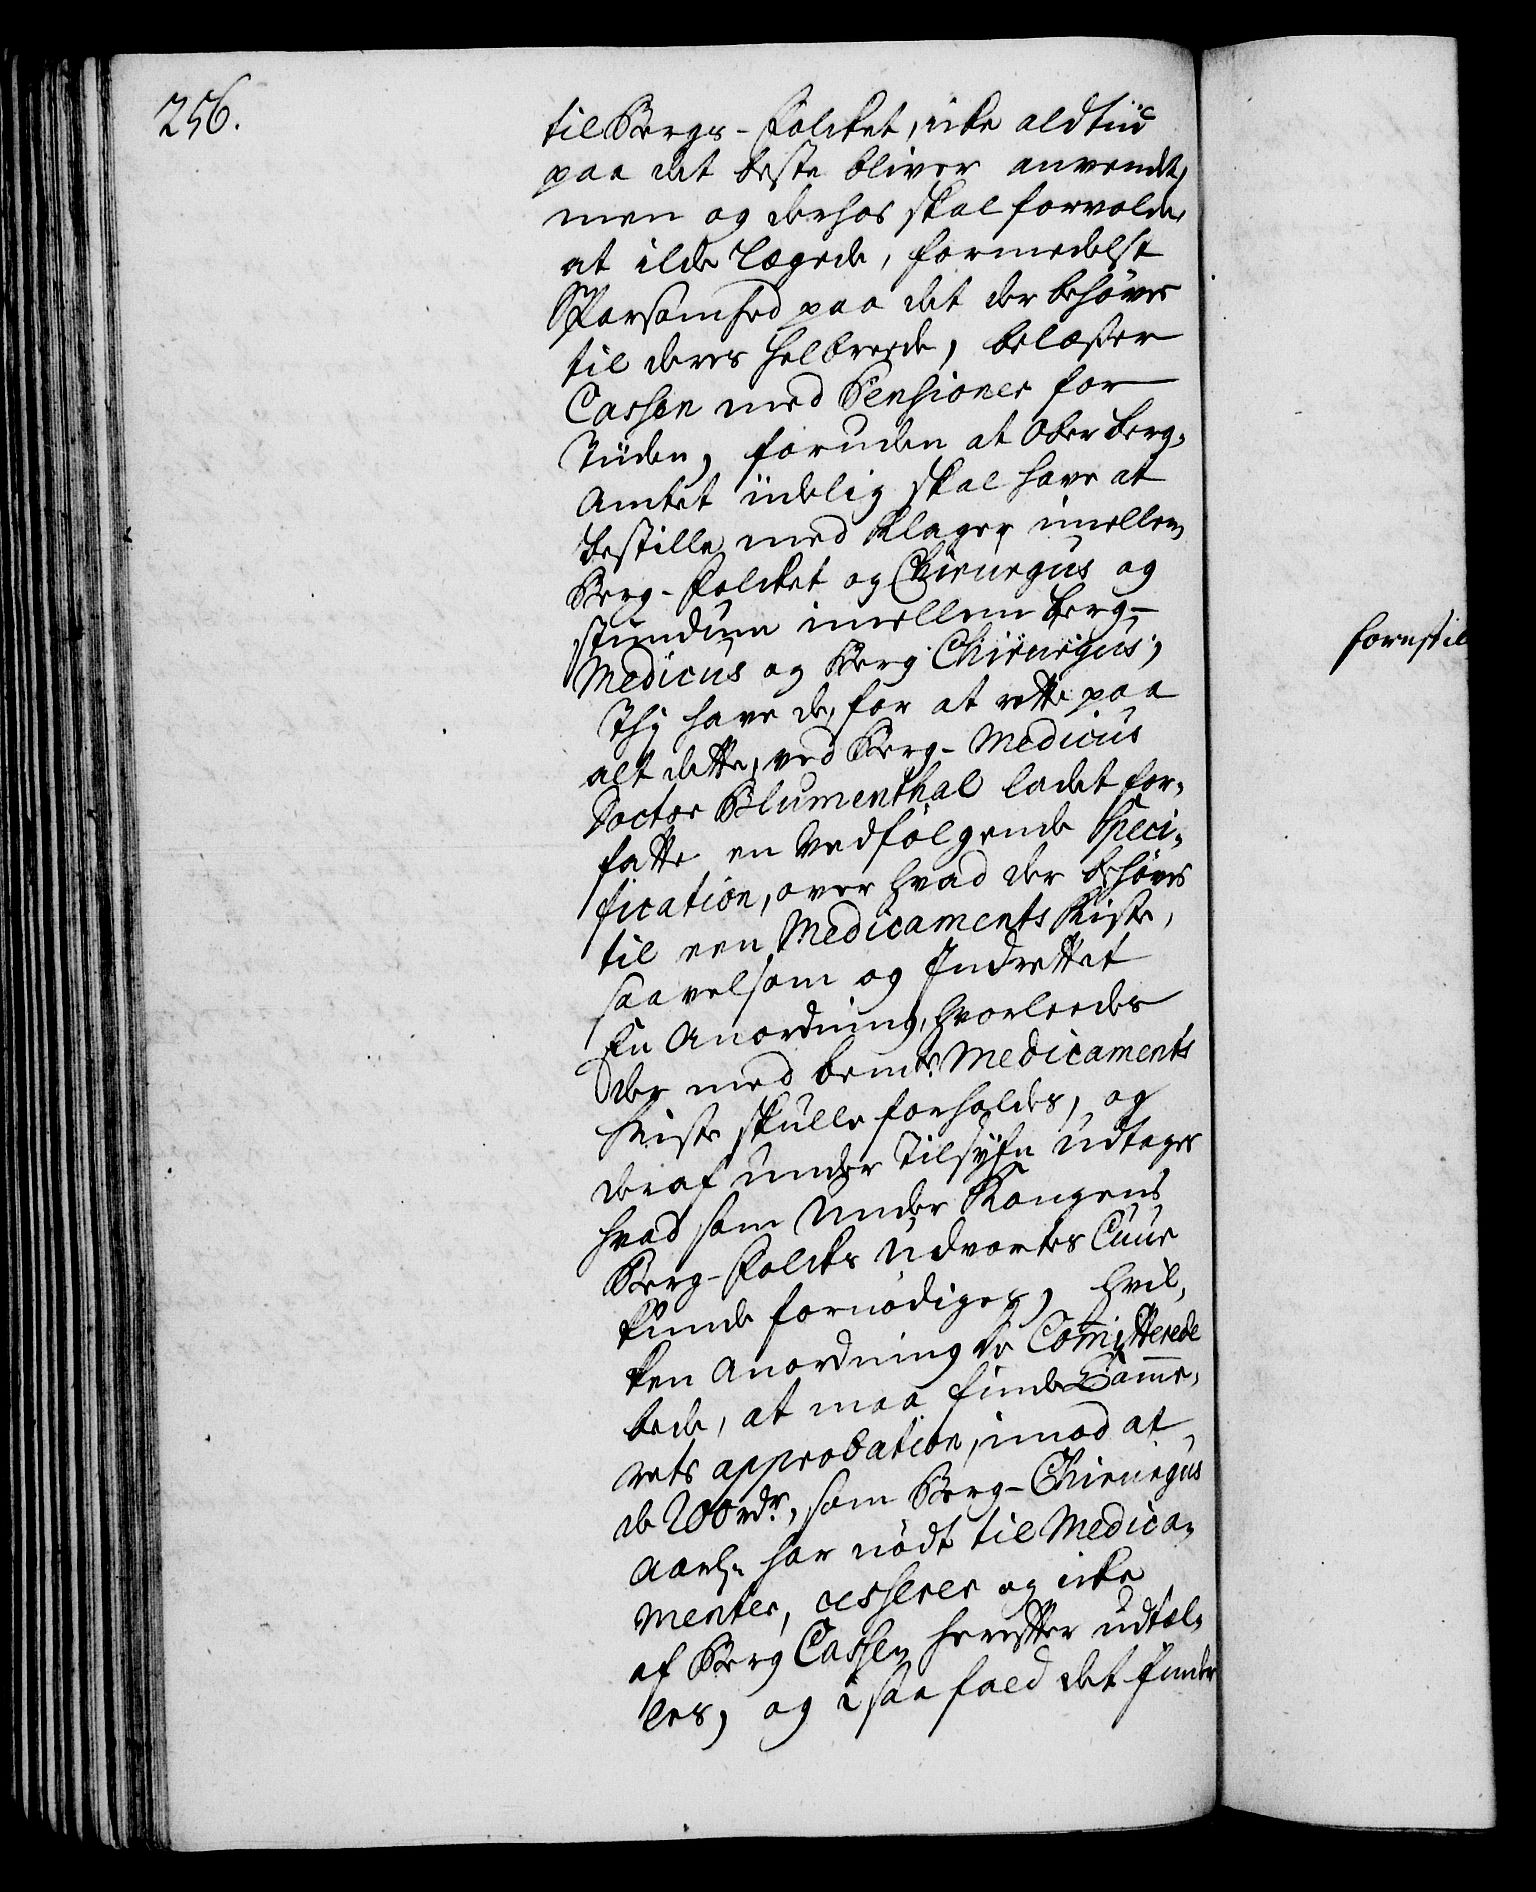 256.
til Bergs-Folcket, icke aldtiid
paa det beste bliver anvendt,
men og derhos skal forvolde,
at ilde lægede, formedelst
Sparsomhed paa det der behöves
til deres helbrede, belæster
Cassen med Pensioner for
Tiiden, foruden at Ober Berg-
Amtet iidelig skal have at
bestille med Klager imellem
Berg-Folcket og Chirurgus og
stundum imellem Berg-
Medicus og Berg Chirurgus;
Thj have de, for at rette paa
alt dette, ved Berg-Medicus
Doctor Blumenthal ladet for-
fatte en Vedfölgende Speci-
fication, over hvad der behöves
til een Medicaments Kiste,
saavelsom og Indrettet
En Anordning, hvorleedes
der med bemte Medicaments
Kiste skulle forholdes, og
deraf under Tilsÿn Udtages
hvad som Under Kongens
Berg-Folcks Udvortes Cuur
kunde fornödiges, hvil-
ken Anordning de Committerede
bede, at maa finde Camme-
rets approbation, imod at
de 200 rdr., som Berg-Chirurgus
Aarl. har nödt til Medica-
menter, cesserer og icke
af Berg Cassen herefter udtæl-
les, og i saa fald det finder
fornstil